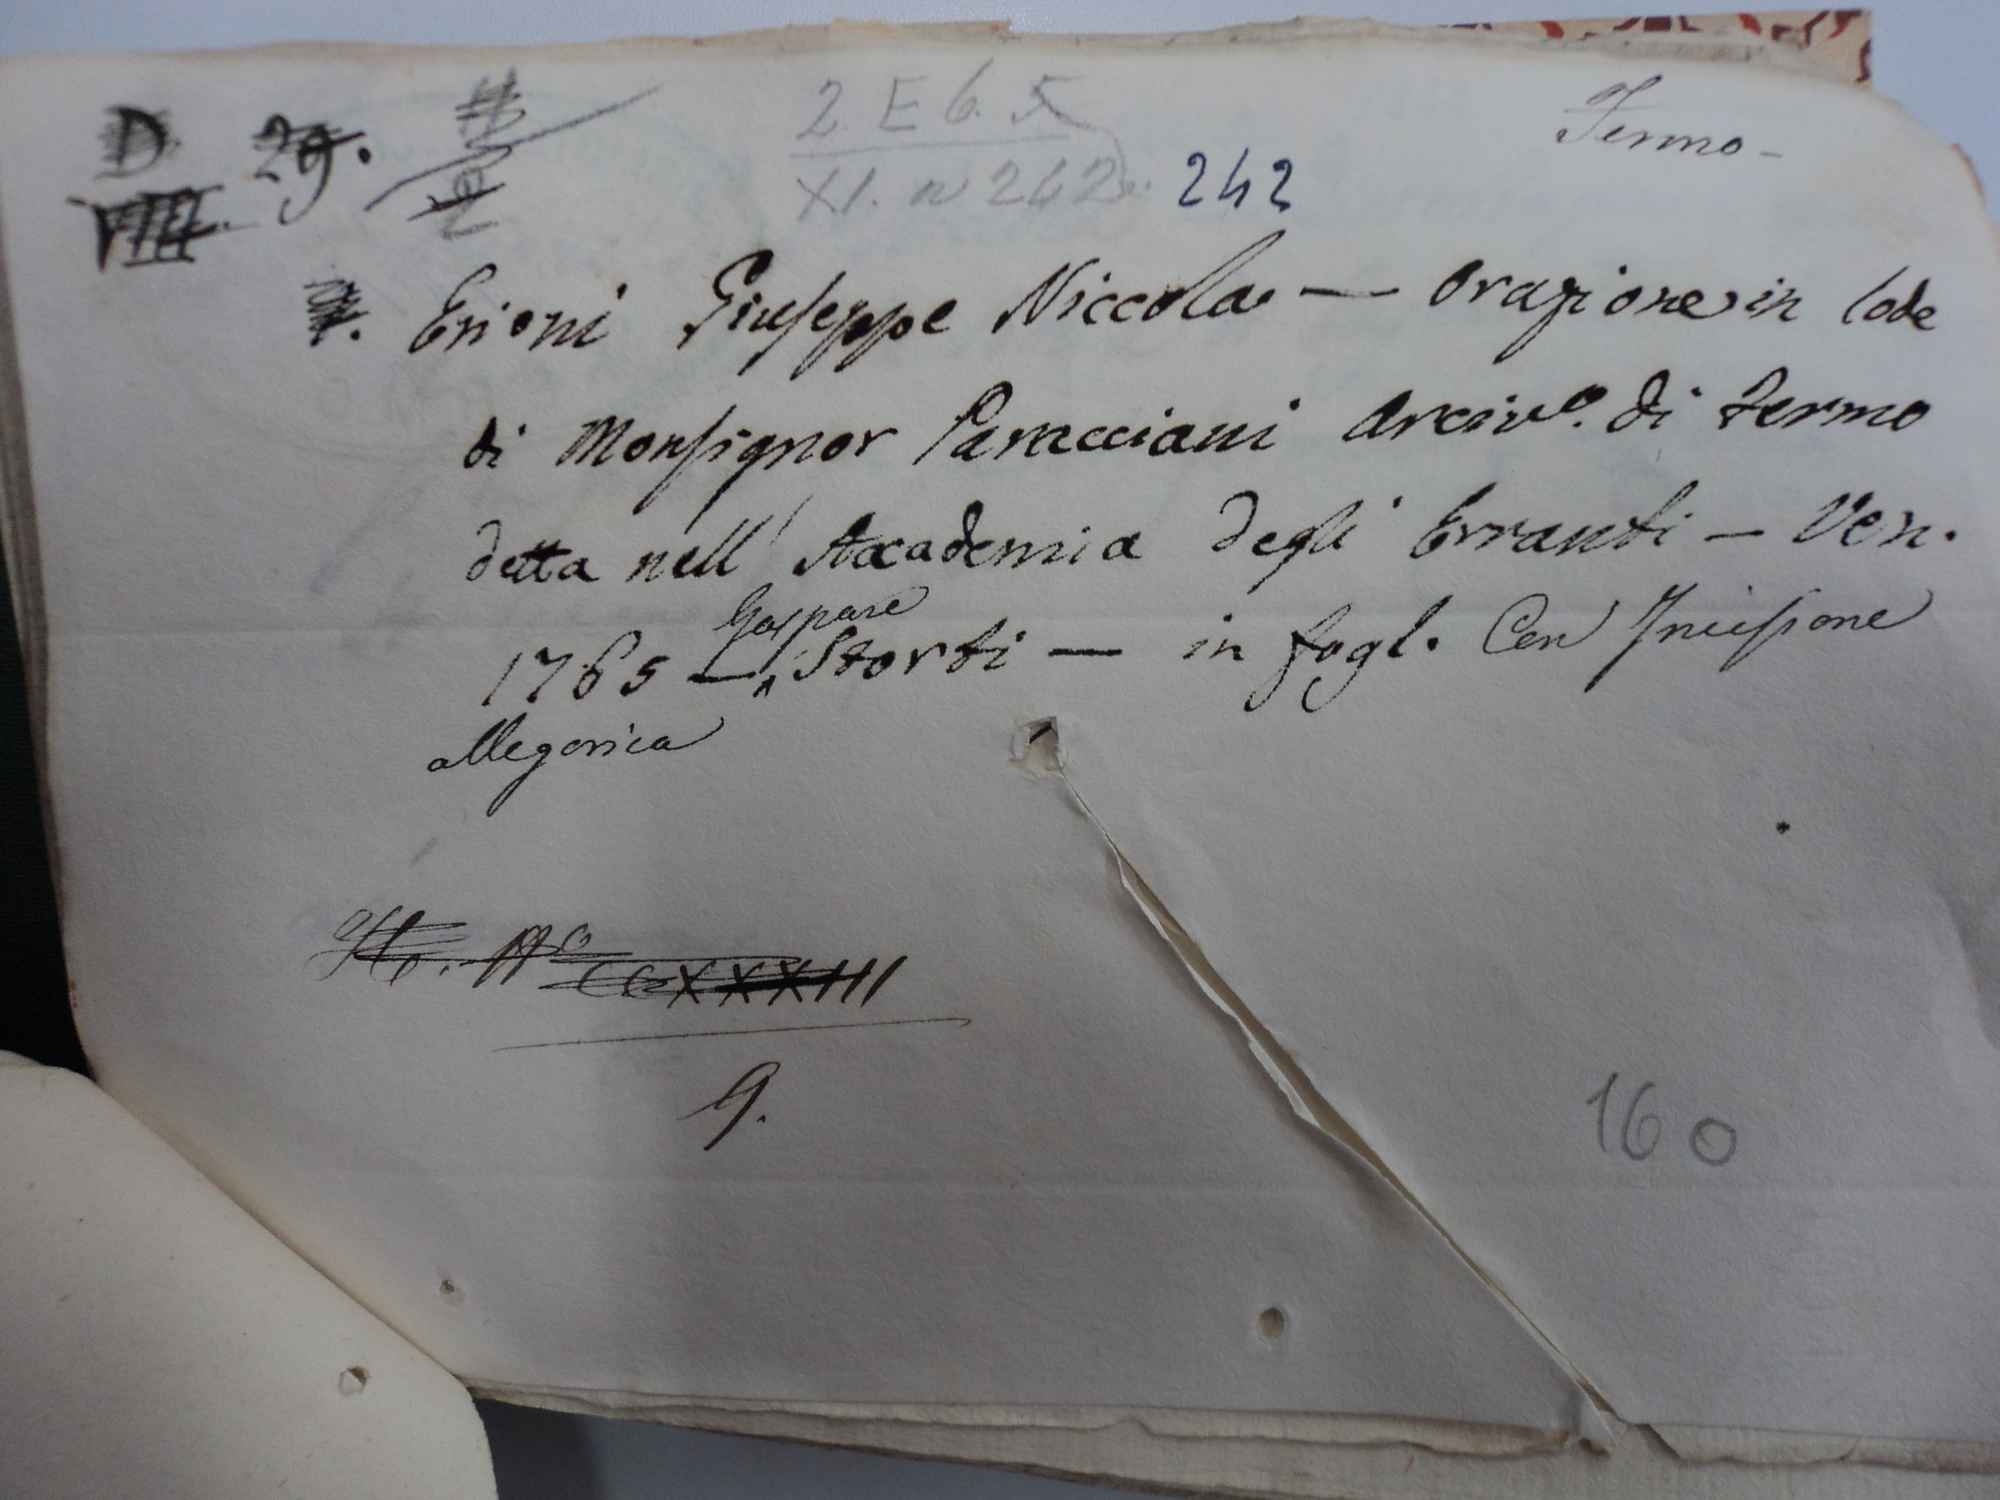 D 29. 2 E 6. 5 Fermo -
VIII. XI. n 242. 242
Erioni Giuseppe Niccola — Orazione in lode
di Monsignor Paracciani Arciv.o di Fermo
detta nell' Accademia degli Erranti — Ven.
1765 — Gaspare Storti — in fogl. Con Incisione
allegorica
N.o CCXXXIII
9.
160